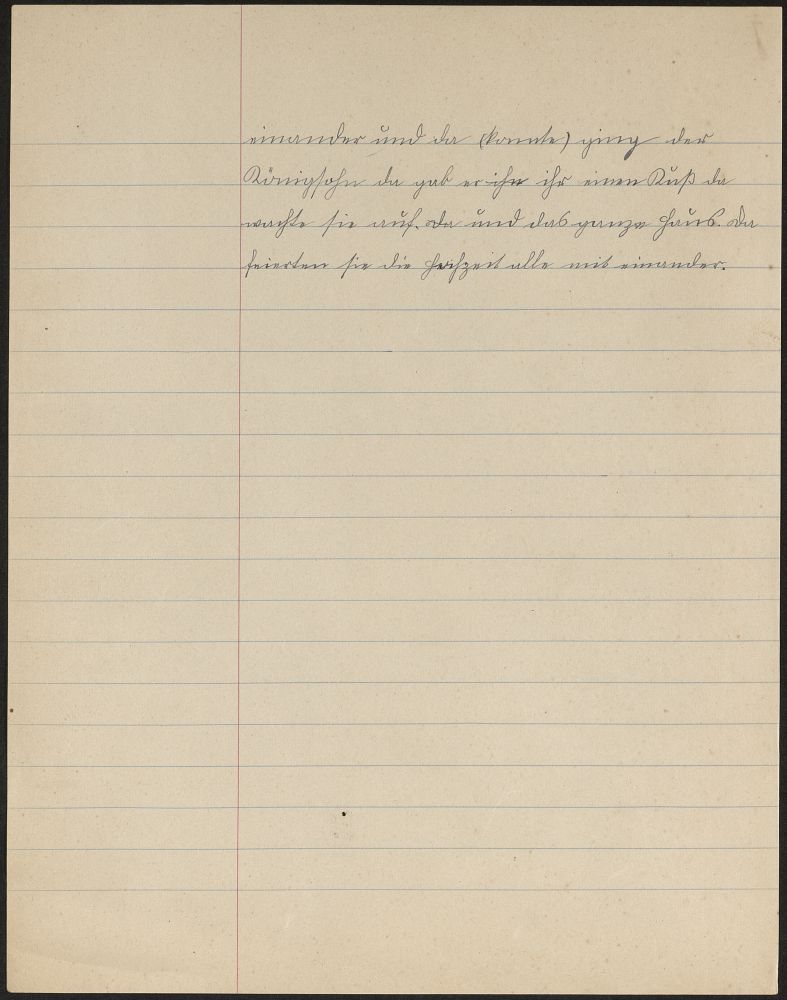 einander und da (konnte) ging der
Königsohn da gab er ihr einen Kuß da
wachte sie auf. Da und das ganze Haus. Da
feierten sie die Hochzeit alle mit einander.